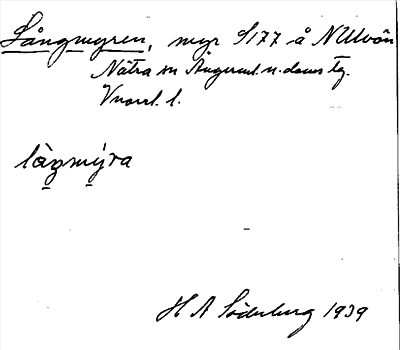 Långmyren, myr S177 å N Ulvön
Nätra sn Ångerml. n. doms tg.
Vnorrl. l.
làŋmýra
H A Söderberg 1939